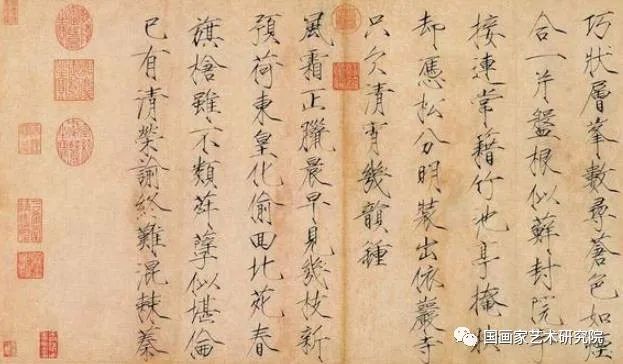 巧狀層峯數尋蒼色如煙
合一片盤根似蘚封院
接連常籍竹池亭掩映
却憑松分明裝出依巖寺
只欠清宵幾韻鍾
風霜正臘晨早見幾枝新
預荷東皇化偷回北苑春
旗槍雖不類荈孽似堪倫
已有清榮諭終難混棘蓁
国画家艺术研究院